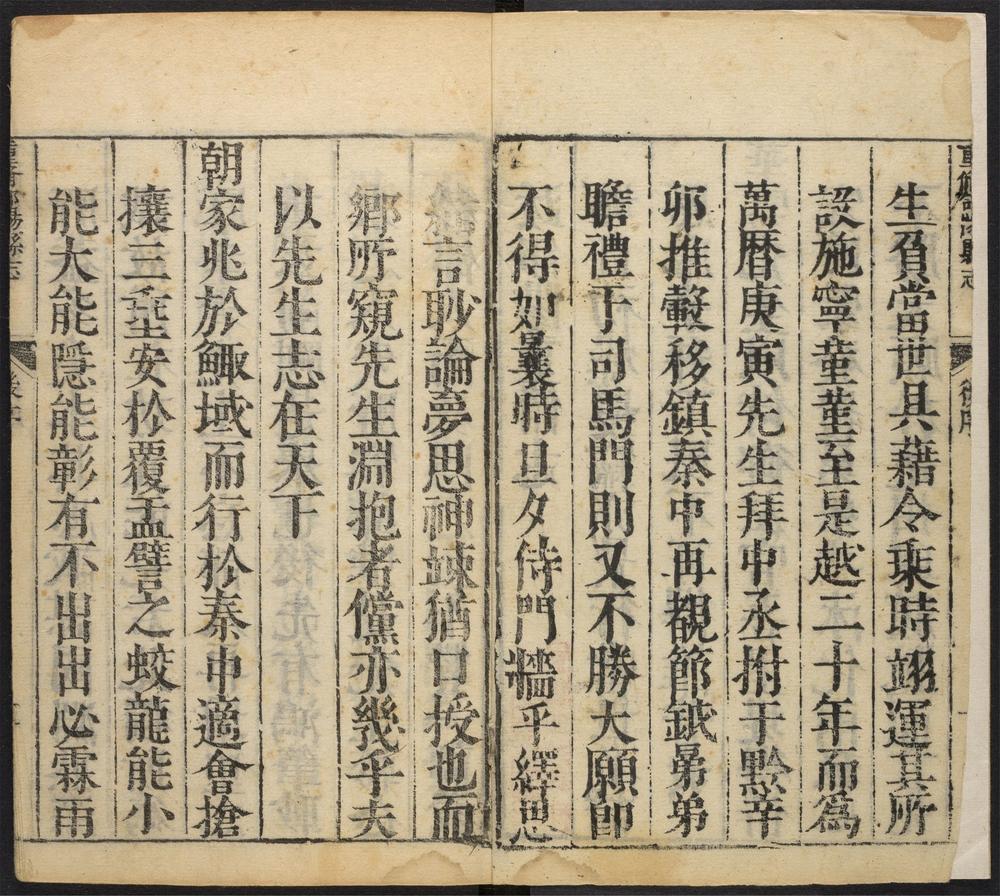 生負當世具藉令乘時翊運其所
設施寧董董至是越二十年而為
萬曆庚寅先生拜中丞拊于黔辛
卯推轂移鎮秦中再覩節鉞弟弟
瞻禮于司馬門則又不勝大願即
不得如曩時旦夕侍門墻乎繹思
言眇論夢思神竦猶口授也而
鄉所窺先生淵抱者儻亦幾乎夫
以先生志在天下
朝家兆於鯫域而行於秦中適會搶
攘三垂安於覆盂譬之蛟龍能小
能大能隱能彰有不出出必霖雨
後序